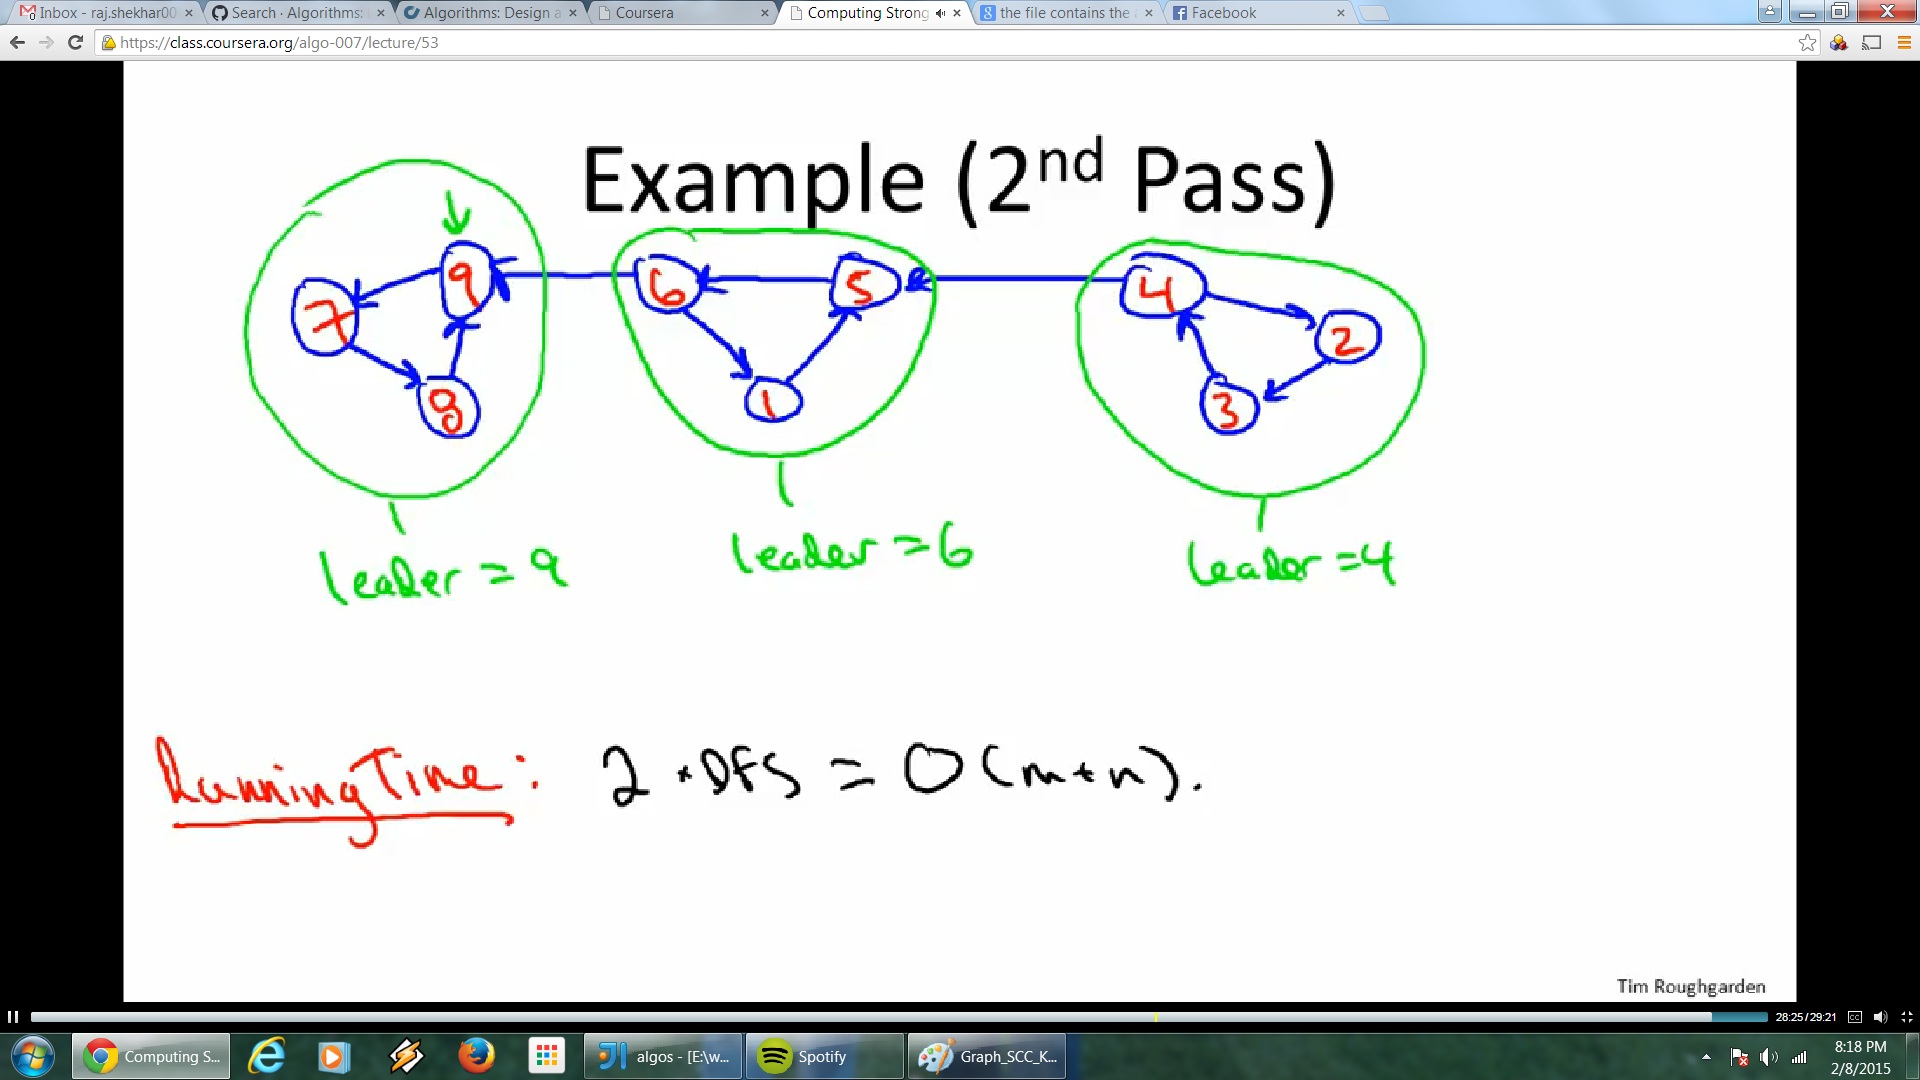 Inbox - raj.shekhar00 Search · Algorithms: Algorithms: Design a Coursera Computing Strong the file contains the Facebook
https://class.coursera.org/algo-007/lecture/53
Example (2nd Pass)
9 6 5 4
7 2
8 1 3
leader = 9 leader = 6 leader = 4
Running Time: 2 * DFS = O(m+n).
Tim Roughgarden
28:25/29:21 CC
Computing S... algos - [E:\w... Spotify Graph_SCC_K... 8:18 PM
2/8/2015